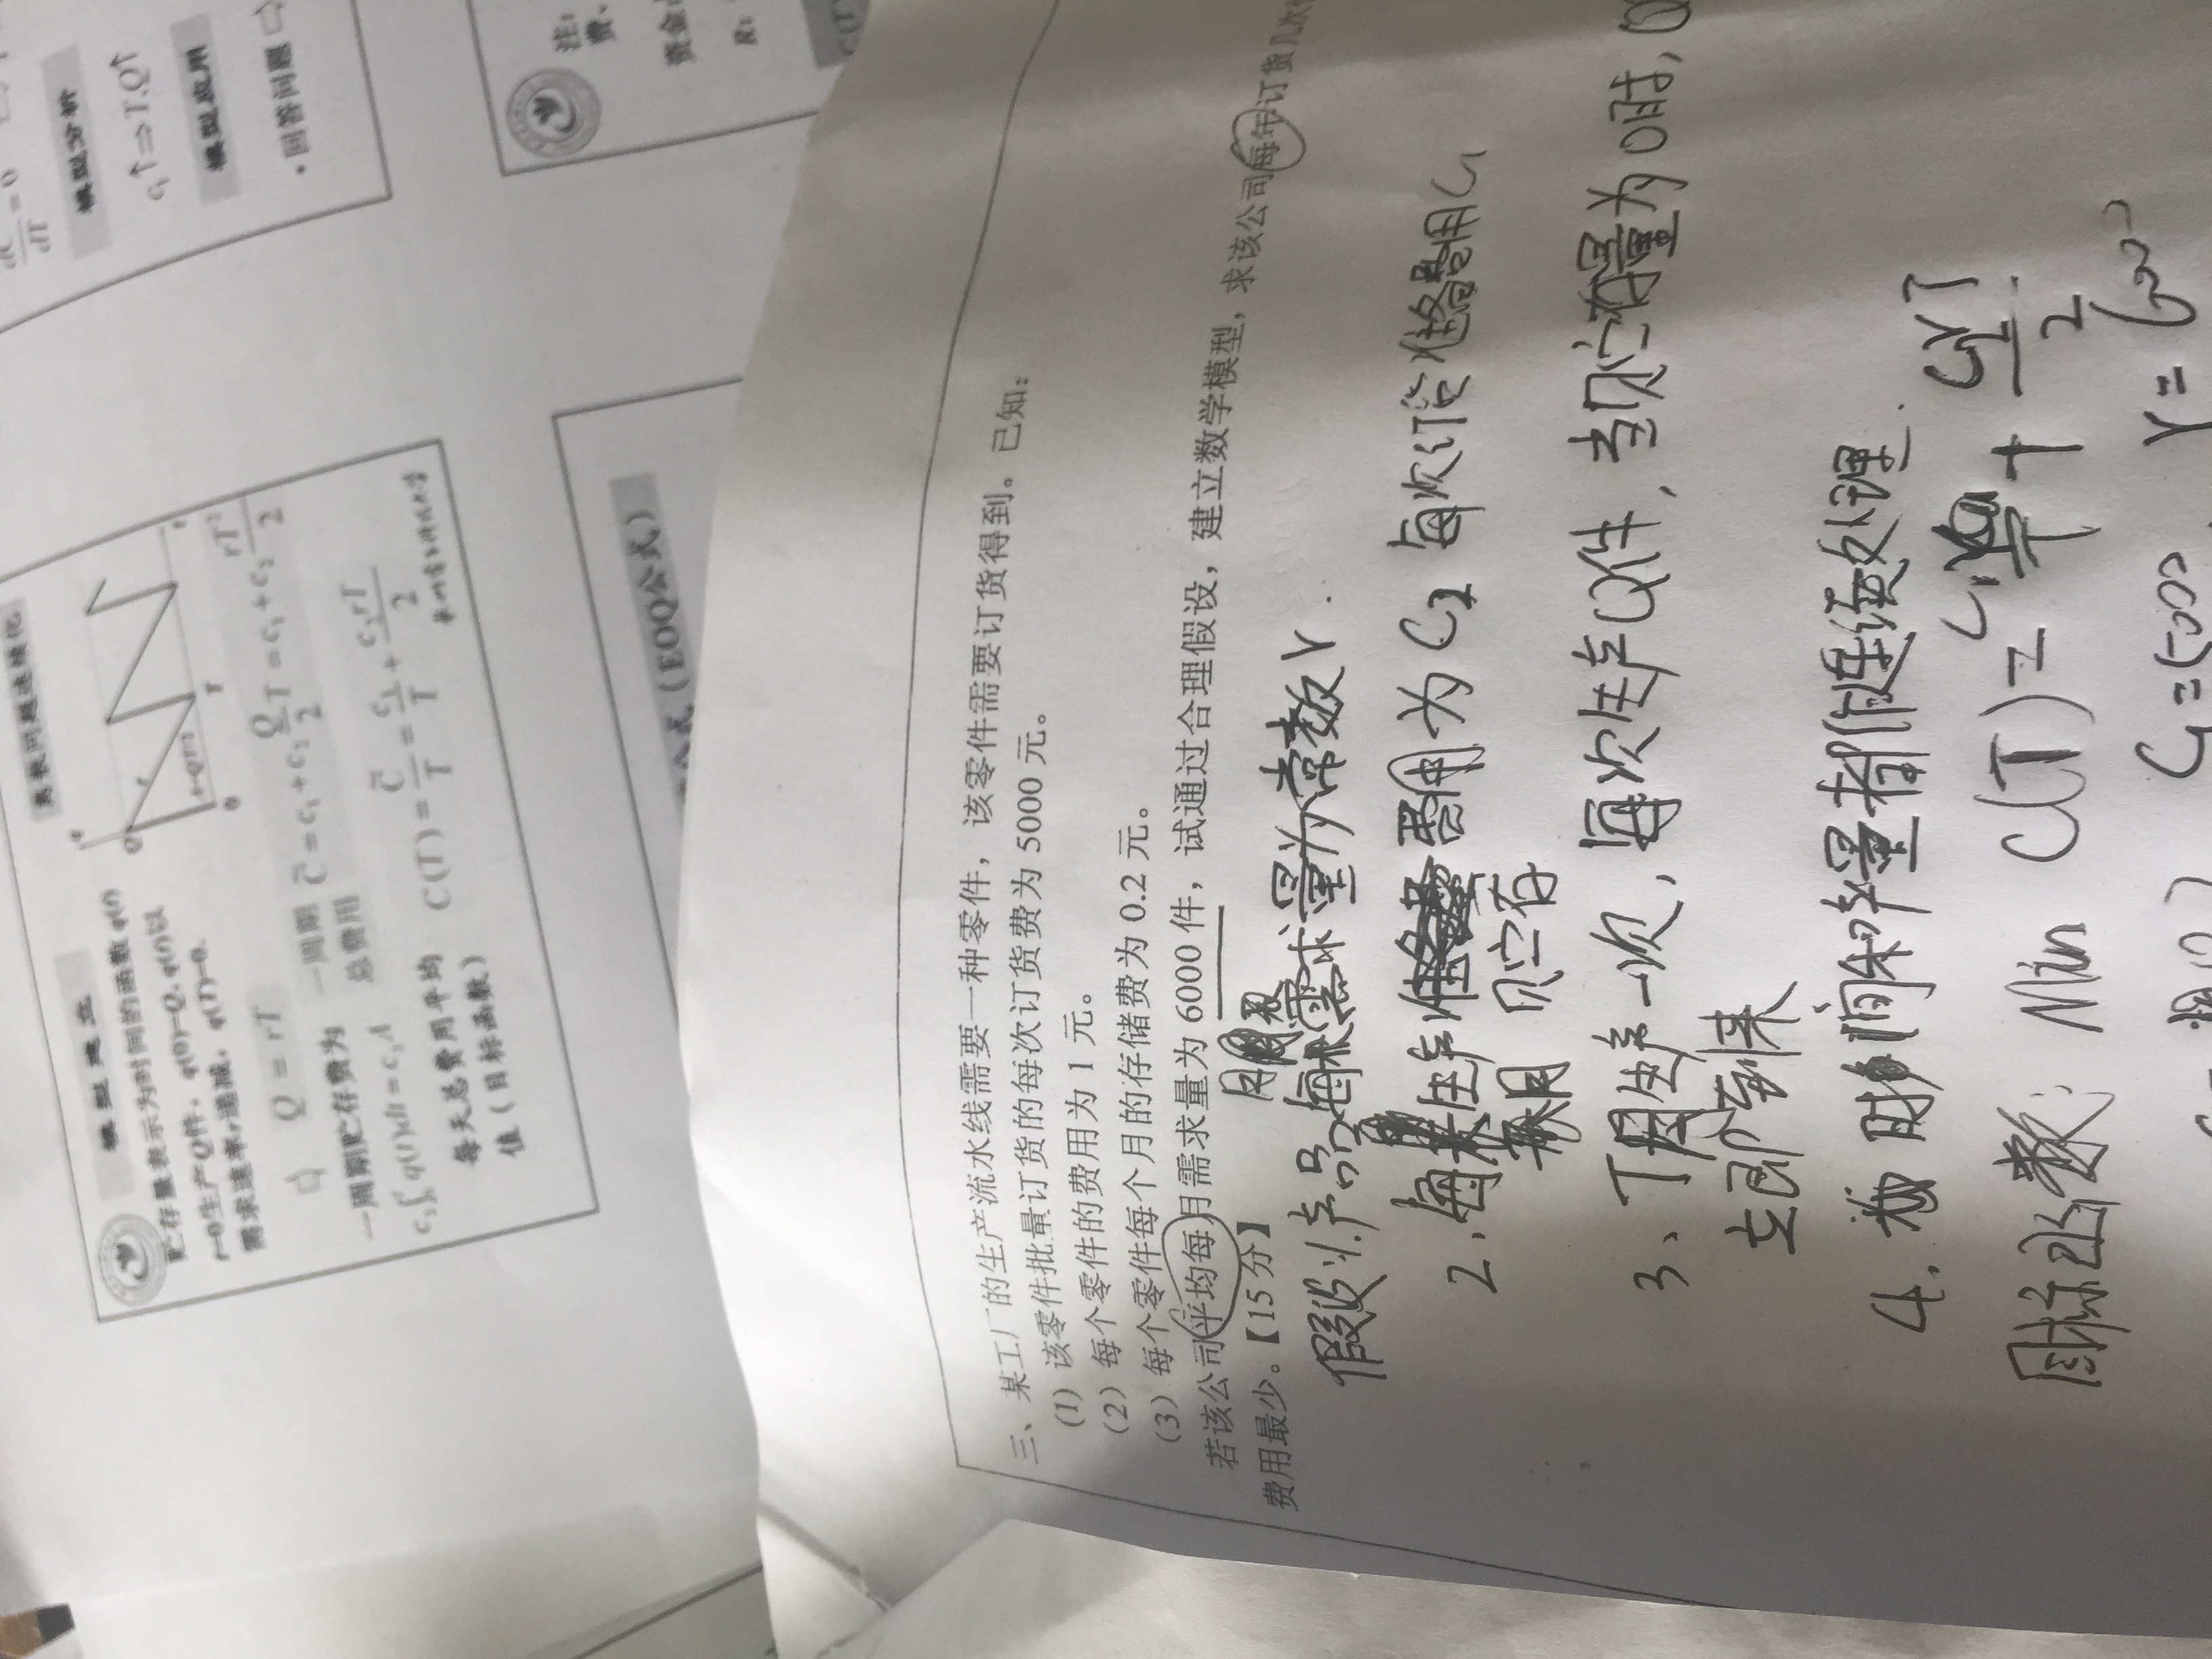 模型建立
离散问题连续化
贮存量表示为时间的函数 q(t)
t=0生产Q件，q(0)=Q, q(t)以
需求速率r递减，q(T)=0.
q
Q
r
A=QT/2
0
T
t
Q = rT
一周期贮存费为
c₂∫₀ᵀ q(t)dt = c₂A
一周期
总费用
C̃ = c₁ + c₂ Q/2 T = c₁ + c₂ rT²/2
每天总费用平均
值（目标函数）
C(T) = C̃/T = c₁/T + c₂rT/2
公式（EOQ公式）
dC/dT = 0
模型分析
c₁↑⇒T,Q↑
模型应用
• 回答问题
注：
费、
资金
R：
三、某工厂的生产流水线需要一种零件，该零件需要订货得到。已知：
(1) 该零件批量订货的每次订货费为 5000 元。
（2）每个零件的费用为 1 元。
（3）每个零件每个月的存储费为 0.2 元。
若该公司平均每月需求量为 6000 件，试通过合理假设，建立数学模型，求该公司每年订货几次
费用最少。【15 分】
月
假设1.产品每 需求量为常数r.
2、每 生产 费用为C₂ 每次订货准备费用C₁
每月 贮存
3、T月生产一次，每次生产Q件，当贮存量为0时，Q
立即到来
4. 时间和产量都作连续处理.
目标函数: Min C(T)= C₁/T + C₂rT/2
C₁=5000 r=6000